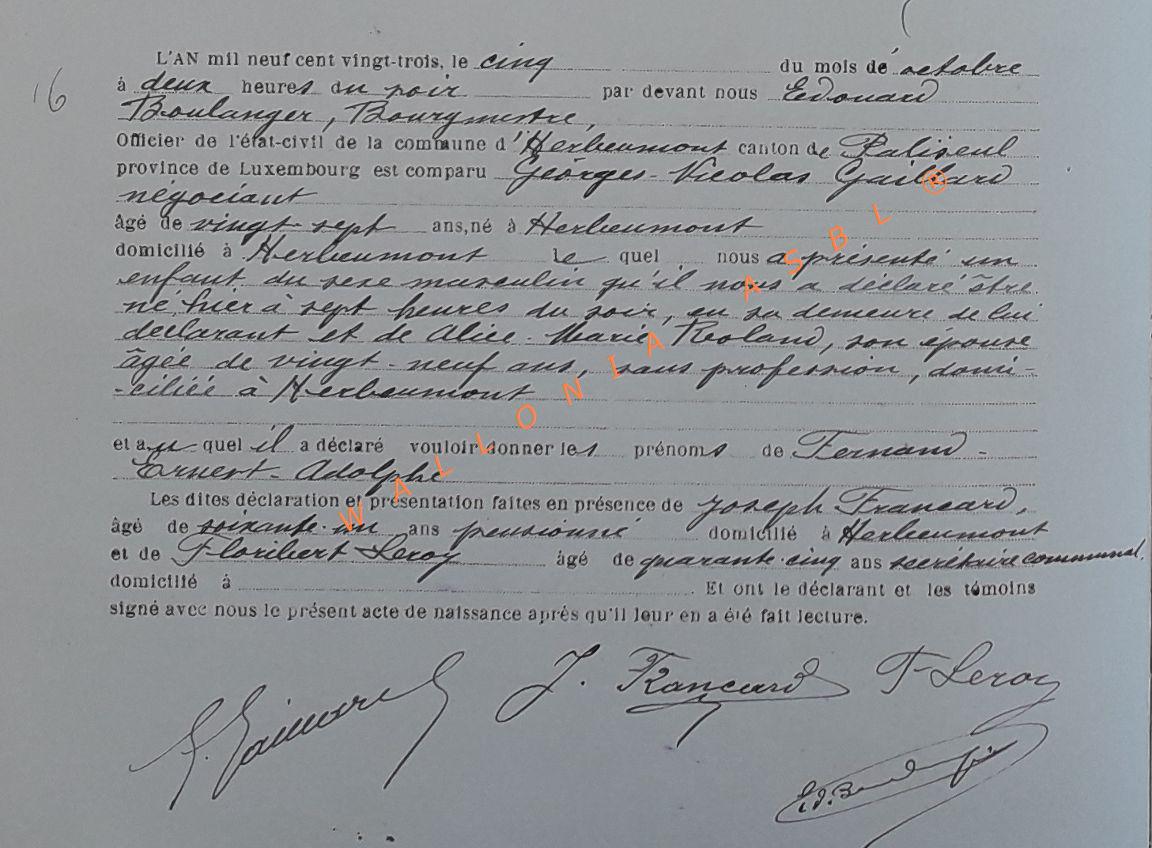 16
L'AN mil neuf cent vingt-trois, le cinq du mois de octobre
à deux heures du soir par devant nous Edouard
Boulanger, Bourgmestre,
Officier de l'état-civil de la commune d'Herbeumont canton de Paliseul
province de Luxembourg est comparu Géorges-Nicolas Gaillard
négociant
âgé de vingt-sept ans, né à Herbeumont
domicilié à Herbeumont le quel nous a présenté un
enfant du sexe masculin qu'il nous a déclaré être
né hier à sept heures du soir, en sa demeure de lui
déclarant et de Alice-Marie Roland, son épouse
âgée de vingt-neuf ans, sans profession, domi-
-ciliée à Herbeumont
et au quel il a déclaré vouloir donner les prénoms de Fernand-
Ernest-Adolphe
Les dites déclaration et présentation faites en présence de Joseph Francard,
âgé de soixante-un ans pensionné domicilié à Herbeumont
et de Floribert Leroy âgé de quarante-cinq ans secrétaire communal.
domicilié à . Et ont le déclarant et les témoins
signé avec nous le présent acte de naissance après qu'il leur en a été fait lecture.
G. Gaillard J. Francard F Leroy
Ed. Boulanger
WALLONIA ASBL ®